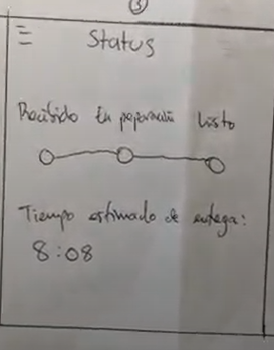 3
Status
Recibido En preparación Listo
Tiempo estimado de entrega:
8:08